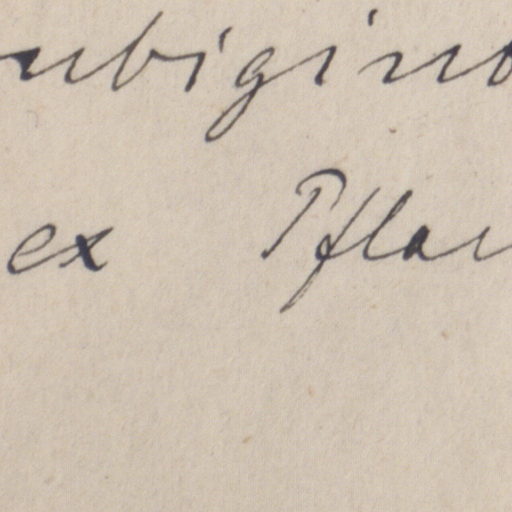 ubigino
ex Pflan